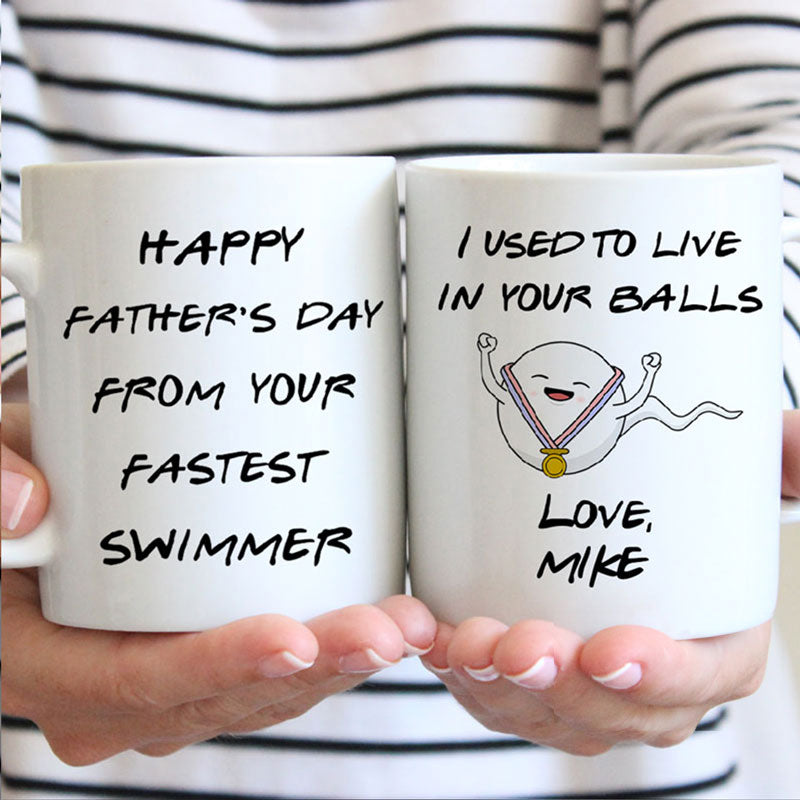 HAPPY
FATHER'S DAY
FROM YOUR
FASTEST
SWIMMER
I USED TO LIVE
IN YOUR BALLS
LOVE,
MIKE